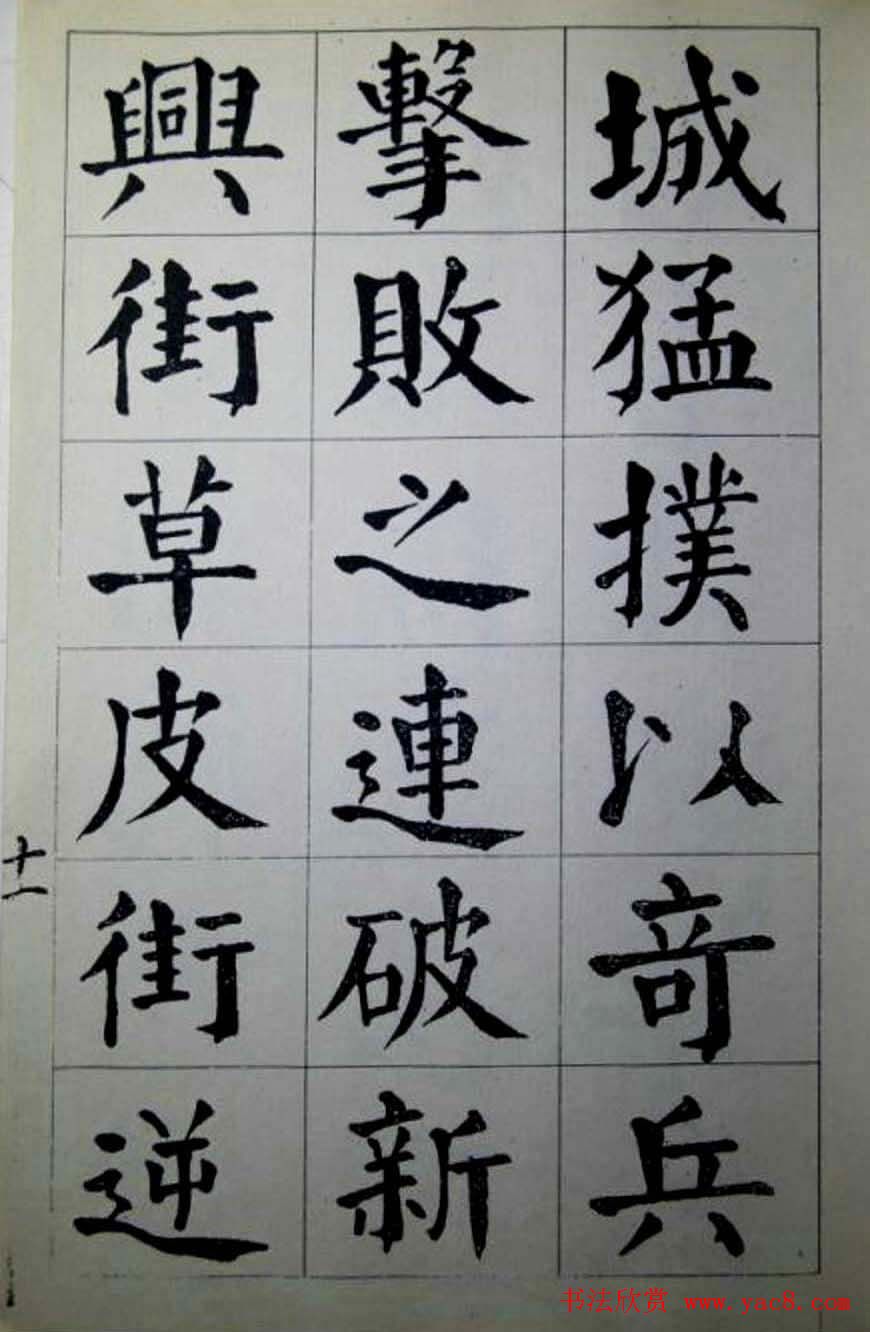 城猛撲以竒兵
擊敗之連破新
興街草皮街逆
十一
书法欣赏 www.yac8.com